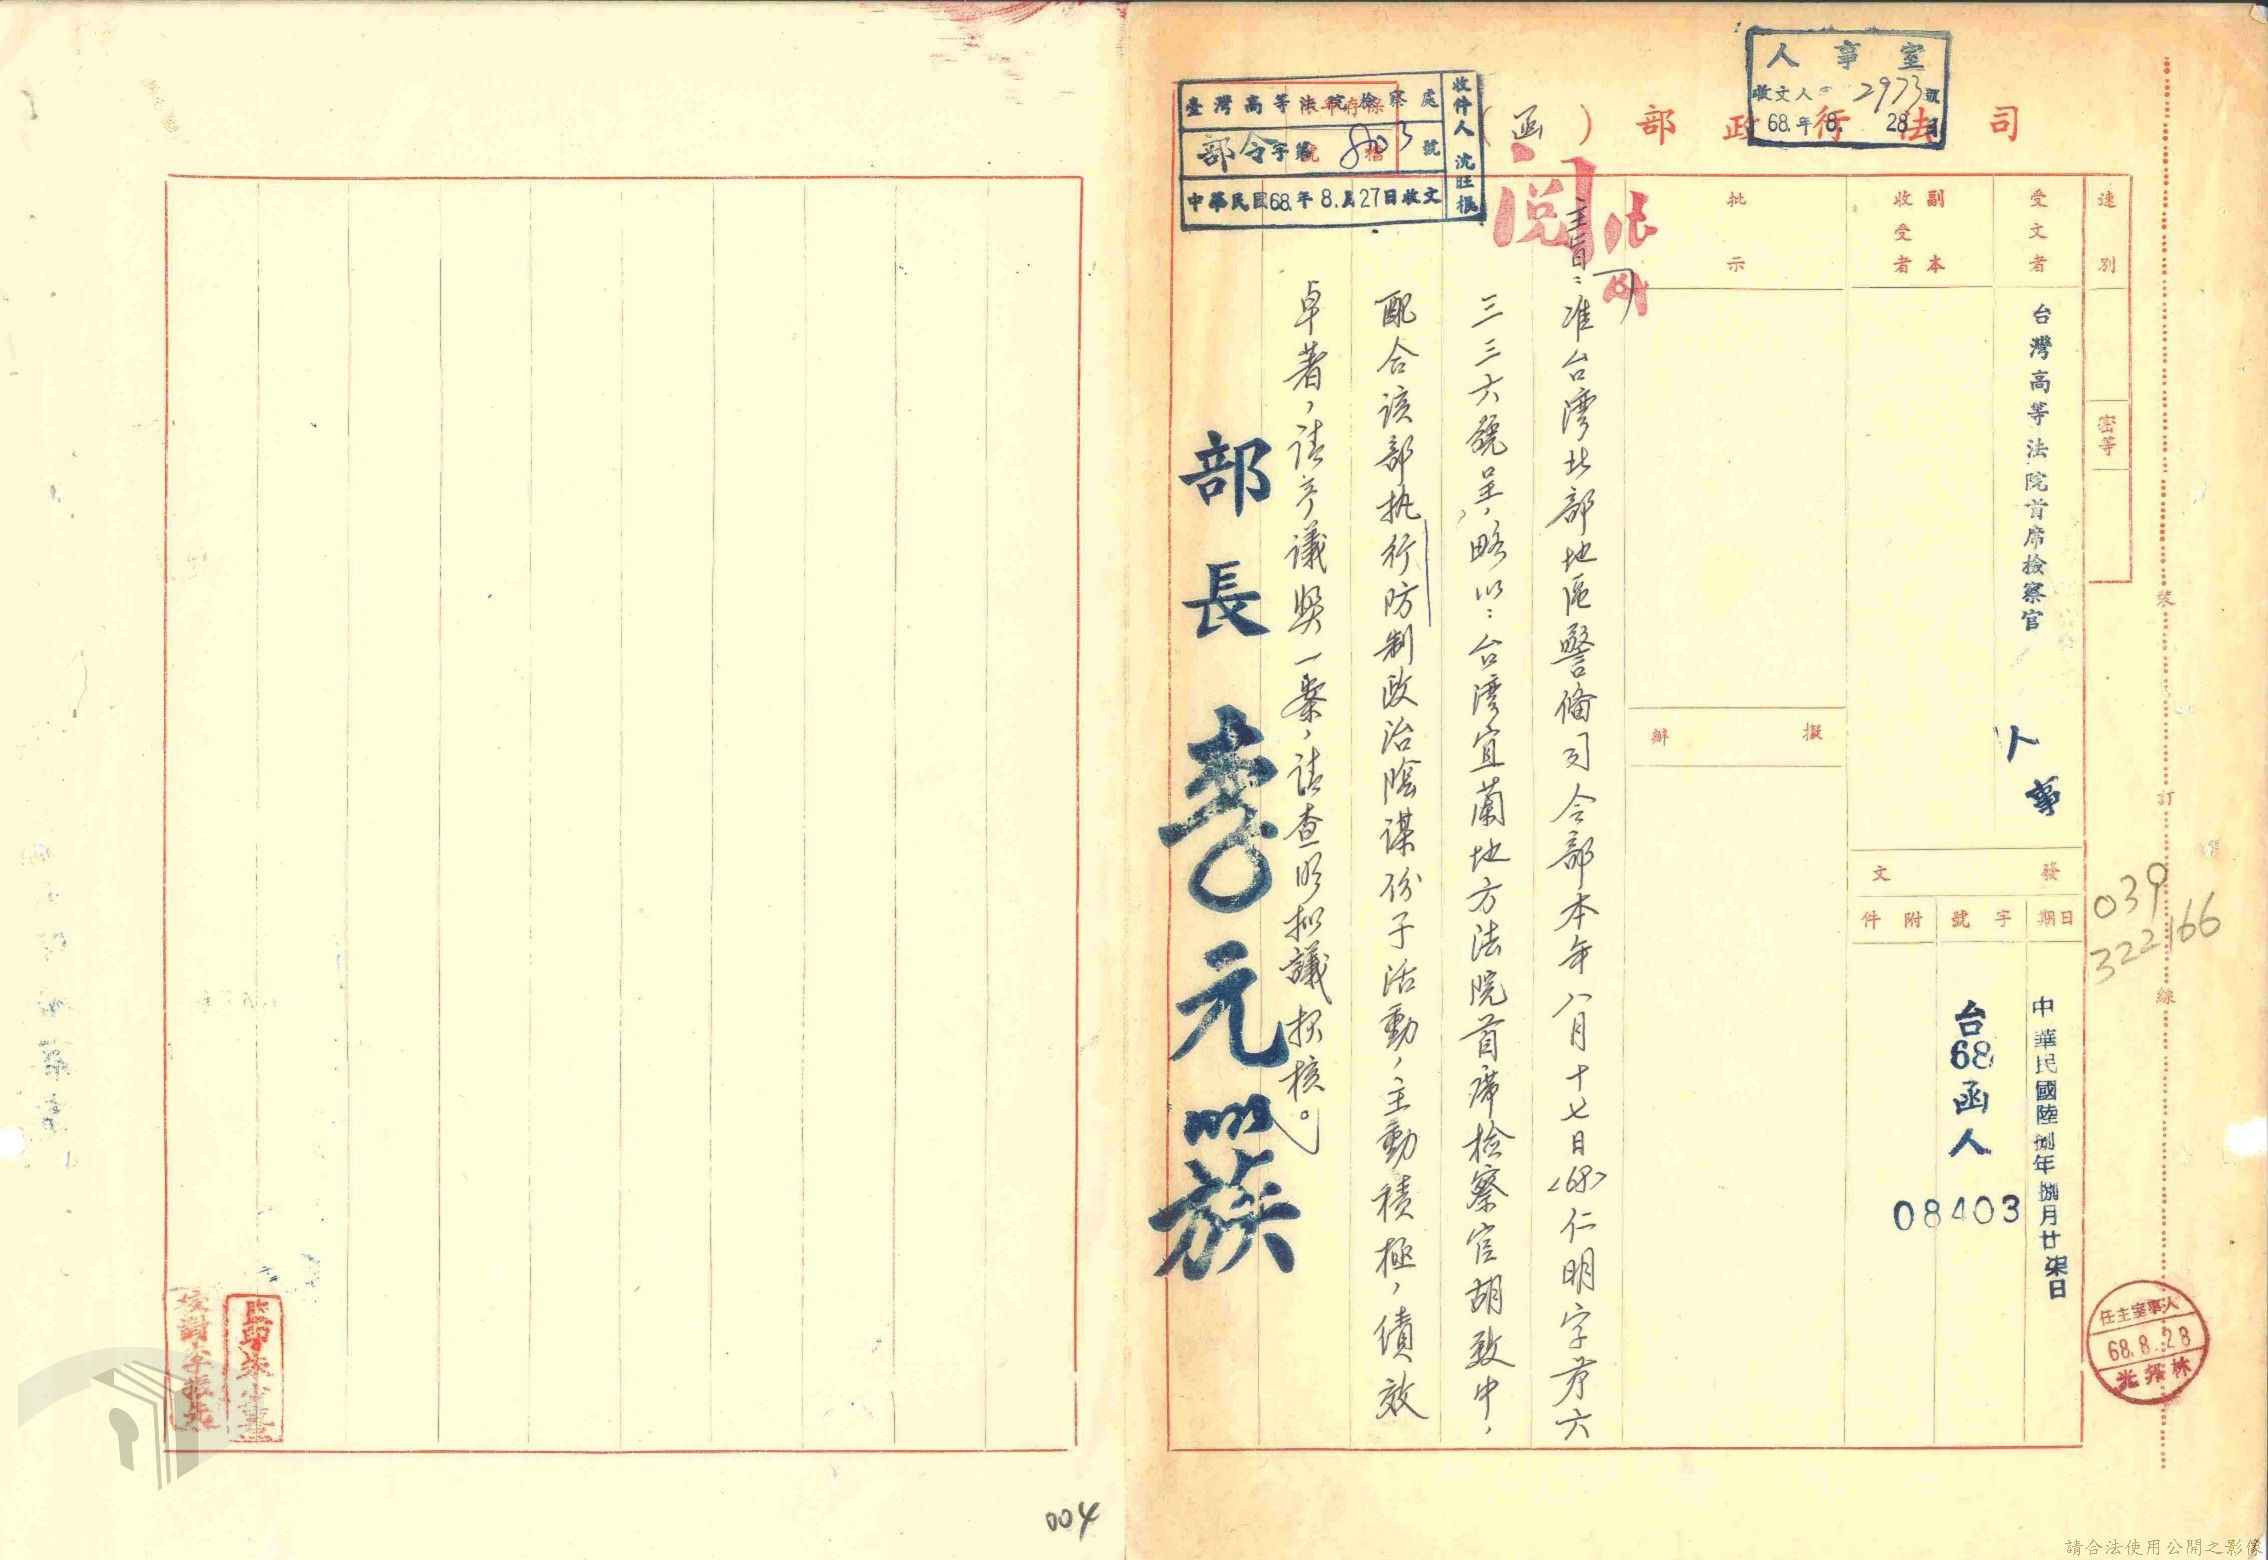 司法行政部（函）
人事室
收文人 2973號
68.年8.28日
臺灣高等法院檢察處
部令字第803號
中華民國68.年8.月27日收文
收件人 沈旺根
保存年限
檔號
閱
速別
密等
受文者
台灣高等法院首席檢察官
人事
副本收受者
批示
擬辦
發文
日期
中華民國陸捌年捌月廿柒日
字號
台68函人
08403
附件
主旨：准台灣北部地區警備司令部本年八月十七日(68)仁明字第六
三三六號呈，略以：台灣宜蘭地方法院首席檢察官胡致中，
配合該部執行防制政治陰謀份子活動，主動積極，績效
卓著，請予議獎一案，請查明擬議報核。
部長 李元簇
裝
訂
線
039
322166
人事室主任
68.8.28
004
請合法使用公開之影像